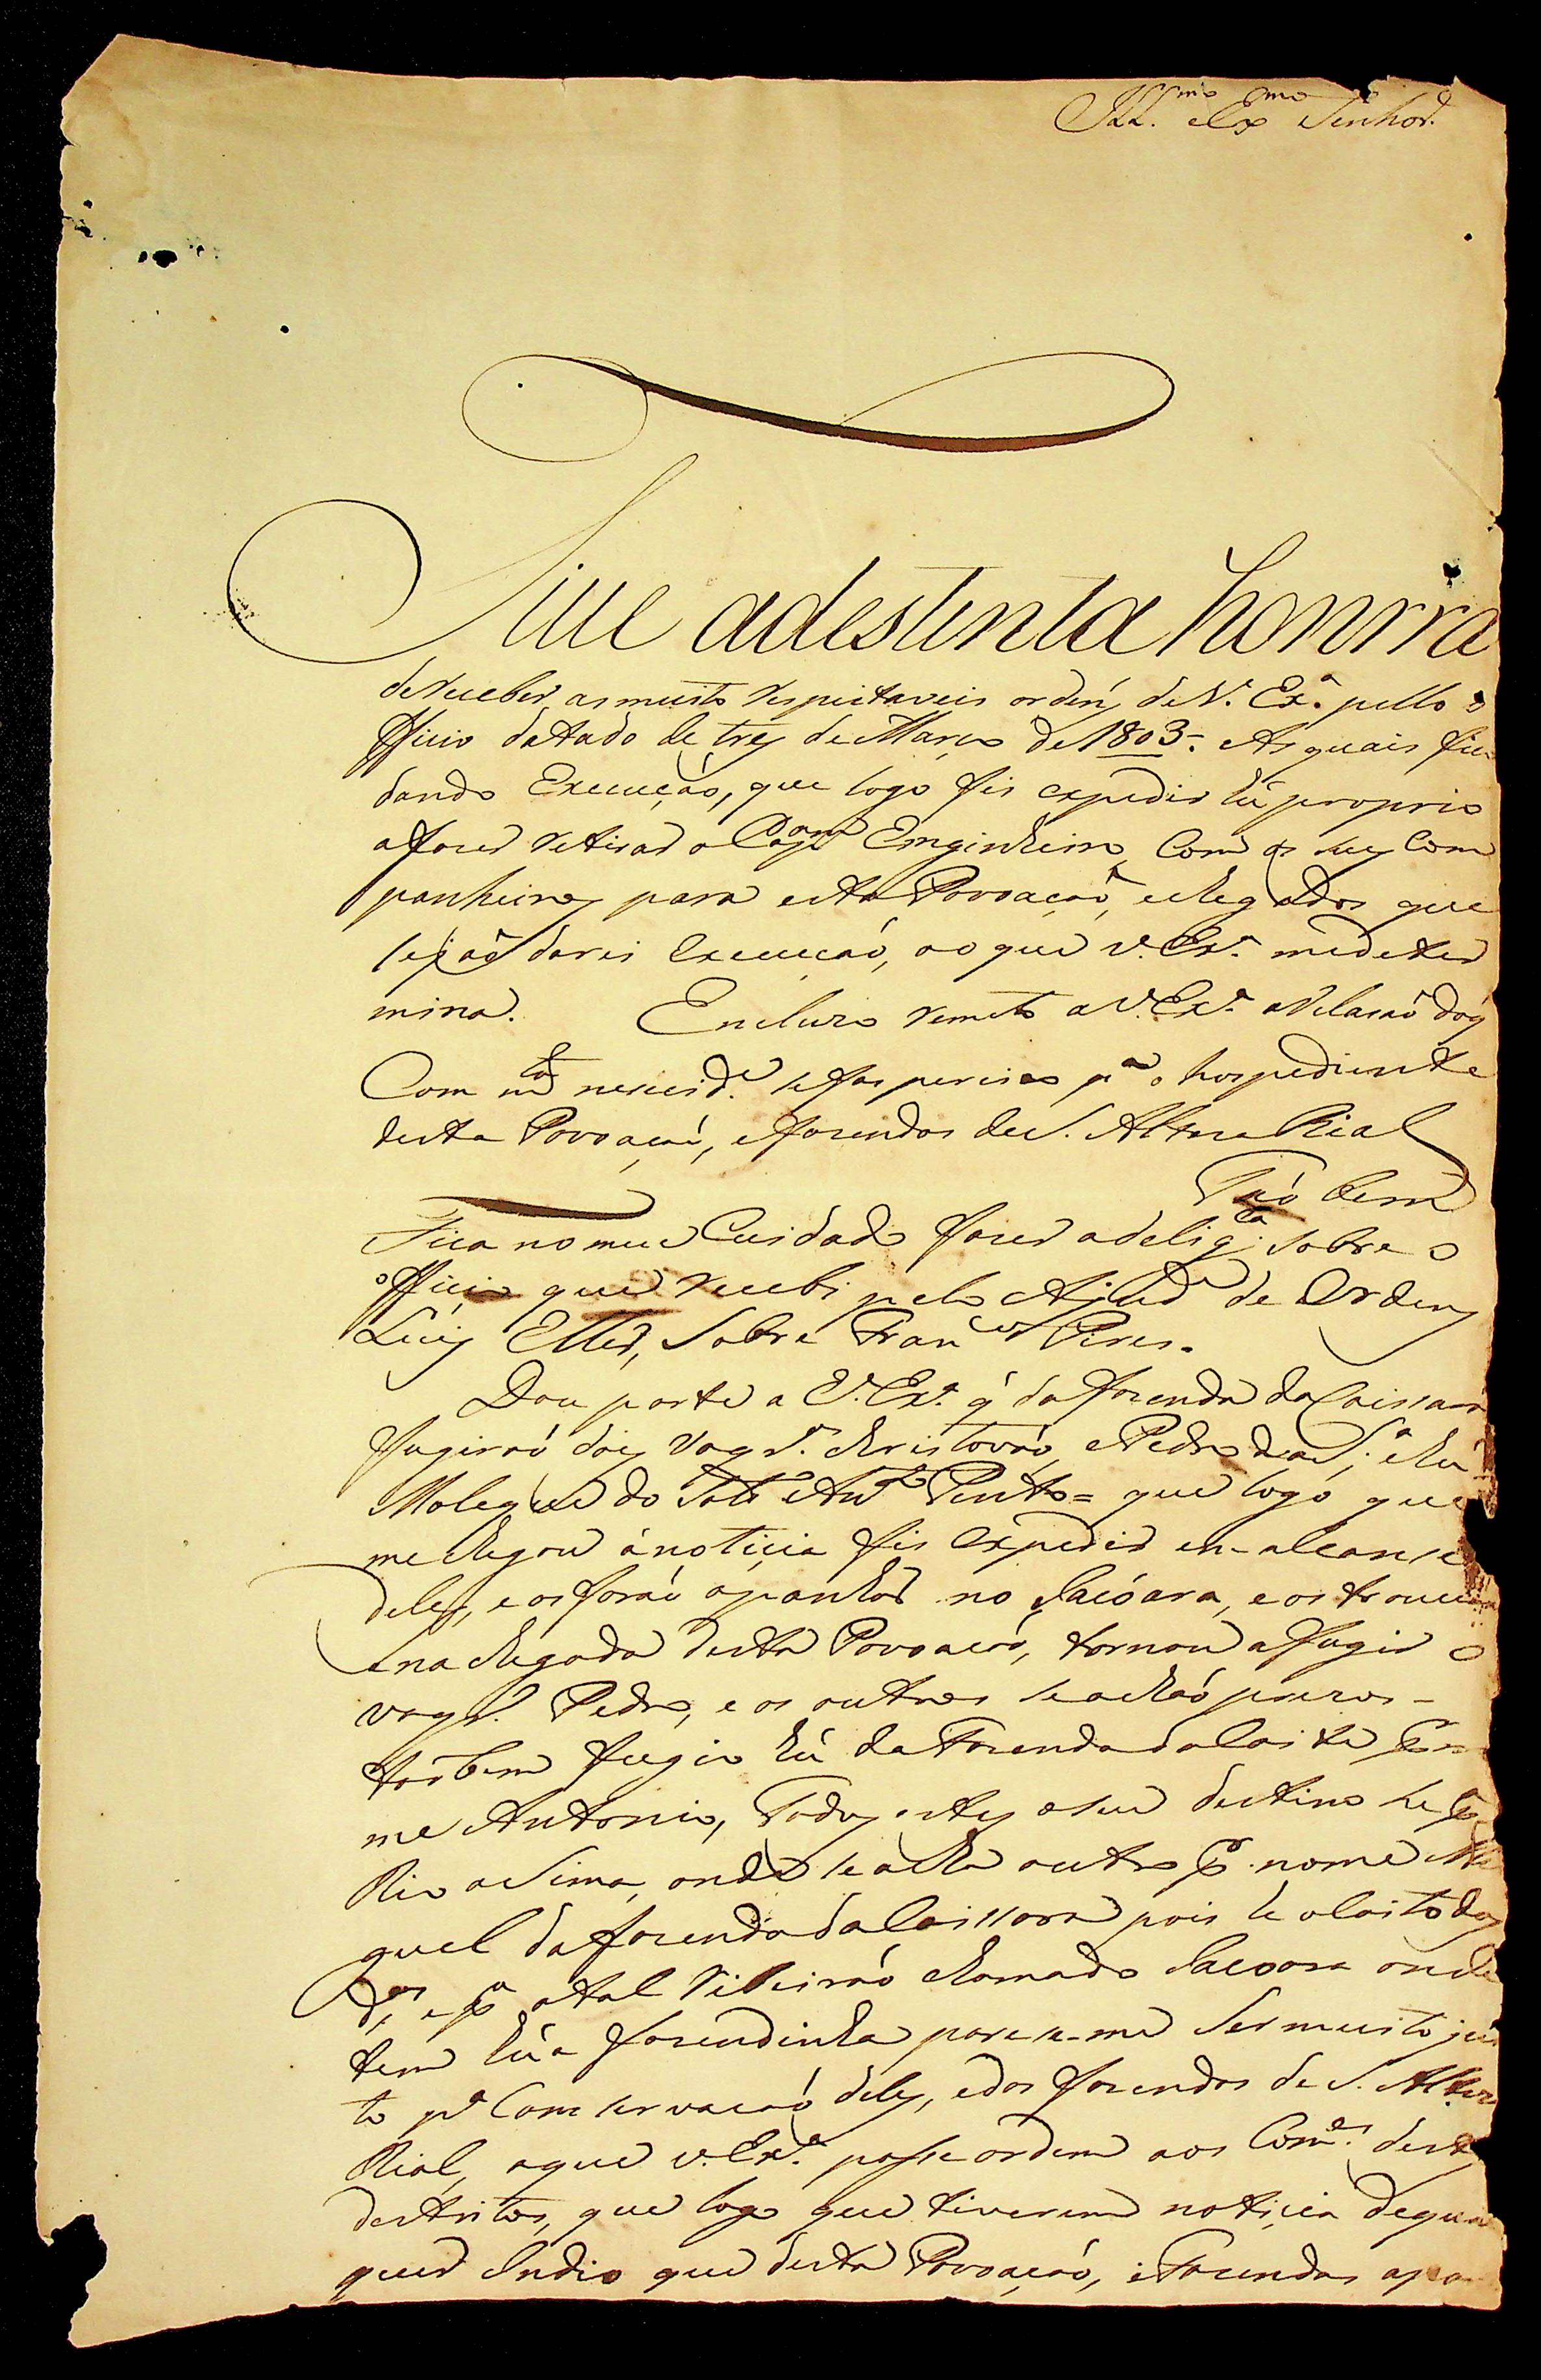 Ill.mo e Ex.mo Senhor.
Tive adestinta honrra
de receber as muito respeitaveis ordeñs de V. Ex.a pello o
fficio datado de tres de Março de 1803=. As quais fico
dando Execução, que logo fis expedir hũ proprio
afazer retirar o Cap.am Emginheiro, Com os seus Com
panheiros para esta Povoação, e chegados que
sejaõ darei execucaó, ao que V. Ex.a me deter
mina. Encluzo remeto a V. Ex.a a Relasaõ dos
Com m.ta necesid.e se fas percizo p.a o hospediente
desta Povoação, e fazendas de S. Alteza Rial
Taó bem
Fica no meu Cuidado fazer a delig.ca sobre o
officio que recebi pelo Ajud.e de Ordens
Luis Eller, Sobre Fran.co Pires.
Dou parte a V. Ex.a q' da fazenda da Caissara
fugiraó dois Vaq.ros Christovaó, e Pedro da S.a e hũ
Moleque do Ant.o Pinto = que logo que
me chegou á noticia fis expedir en-alcanse
deles, e os foraó apanhar no Sacóara, e os trouce
e na chegada desta Povoacaó, tornou a fugir o
vaq.ro Pedro, e os outros se achaó prezos -
taóbem fugio hũ da Fazenda da Caissa p.r no
me Antonio, Todos estes o seu destino he p.a
Rio a Sima, onde se acha outro p.r nome Mi
quel da fazenda da Caissara pois he o Coito dos
d.os e p.a o tal Ribeiraó chamado Sacoara onde
tem hũa fazendinha parece-me Ser muito jus
to p.a Comservacaó deles, e das fazendas de S. Alteza
Rial, a que V. Ex.a passe ordem aos Com.es destes
destritos, que logo que tiverem noticia de qual
quer Indio que desta Povoação, e Fazendas apa